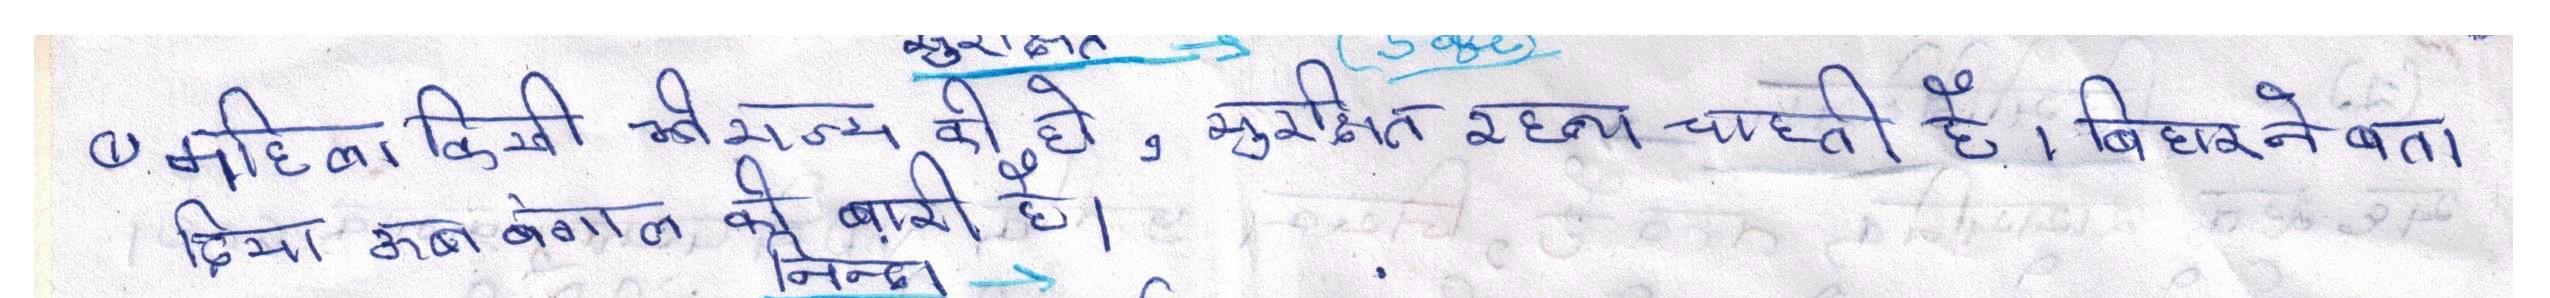 सुरक्षित →
① महिला किसी भी राज्य की हो, सुरक्षित रहना चाहती है। बिहार ने बता
दिया अब बंगाल की बारी है।
निन्दा →